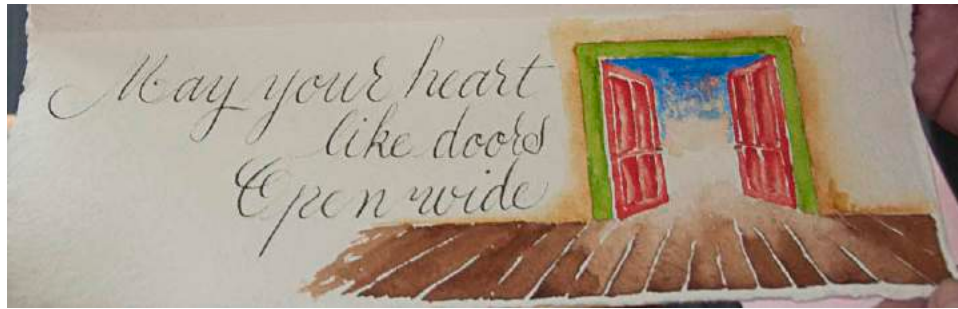 May your heart
like doors
Open wide